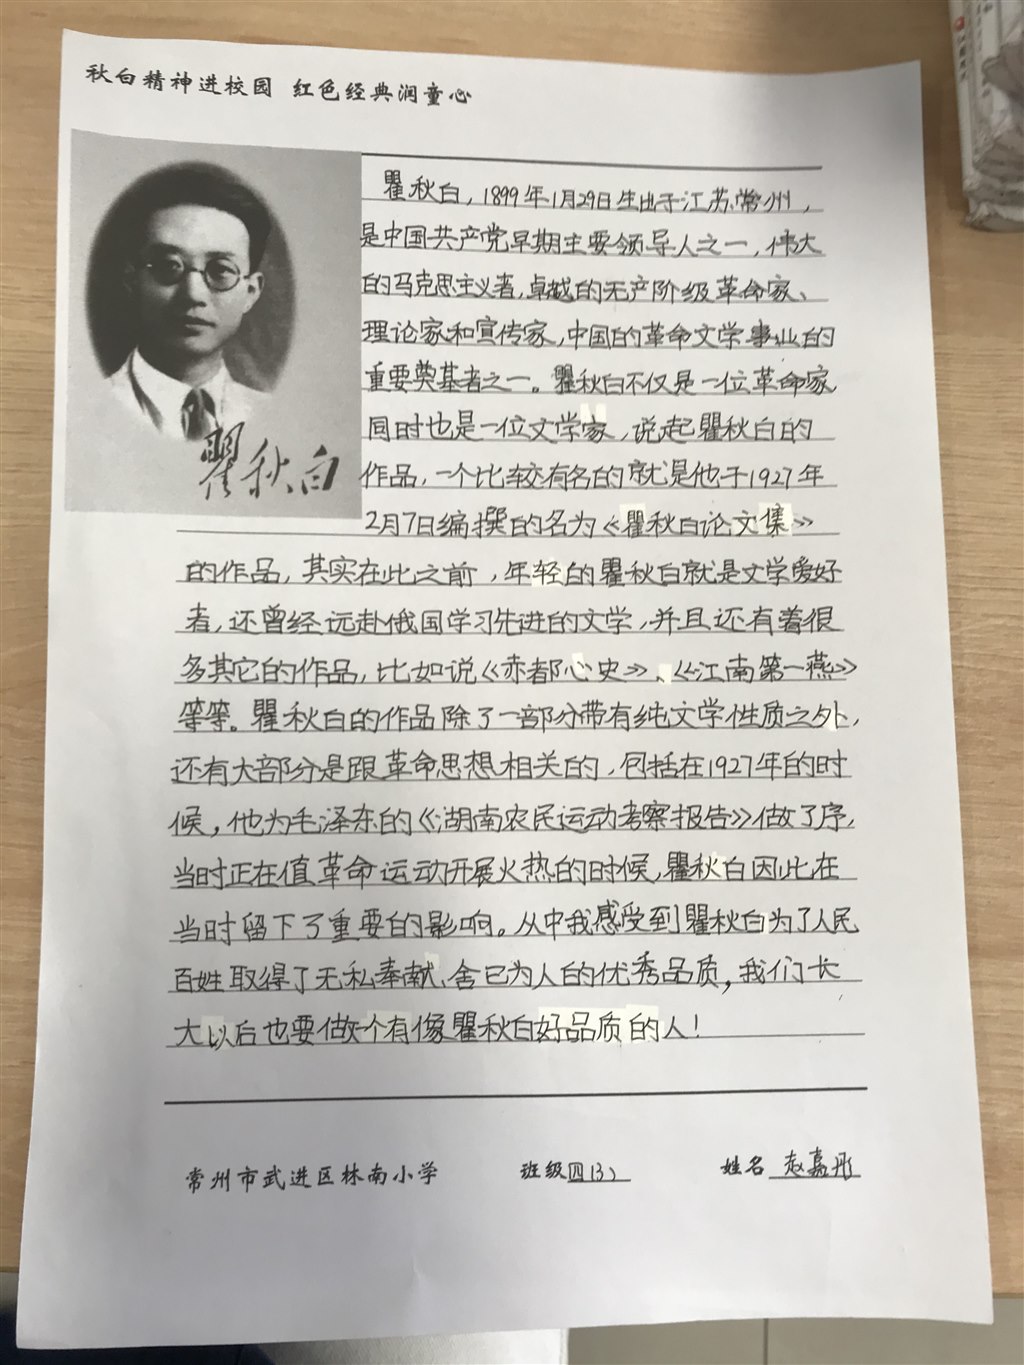 秋白精神进校园 红色经典润童心
瞿秋白，1899年1月29日生出于江苏常州，
是中国共产党早期主要领导人之一，伟大
的马克思主义者，卓越的无产阶级革命家、
理论家和宣传家，中国的革命文学事业的
重要奠基者之一。瞿秋白不仅是一位革命家
同时也是一位文学家，说起瞿秋白的
作品，一个比较有名的就是他于1927年
瞿秋白
2月7日编撰的名为《瞿秋白论文集》
的作品，其实在此之前，年轻的瞿秋白就是文学爱好
者，还曾经远赴俄国学习先进的文学，并且还有着很
多其它的作品，比如说《赤都心史》、《江南第一燕》
等等。瞿秋白的作品除了一部分带有纯文学性质之外，
还有大部分是跟革命思想相关的，包括在1927年的时
候，他为毛泽东的《湖南农民运动考察报告》做了序，
当时正在值革命运动开展火热的时候，瞿秋白因此在
当时留下了重要的影响。从中我感受到瞿秋白为了人民
百姓取得了无私奉献、舍已为人的优秀品质，我们长
大以后也要做一个有像瞿秋白好品质的人！
常州市武进区林南小学 班级四(3) 姓名 赵嘉彤